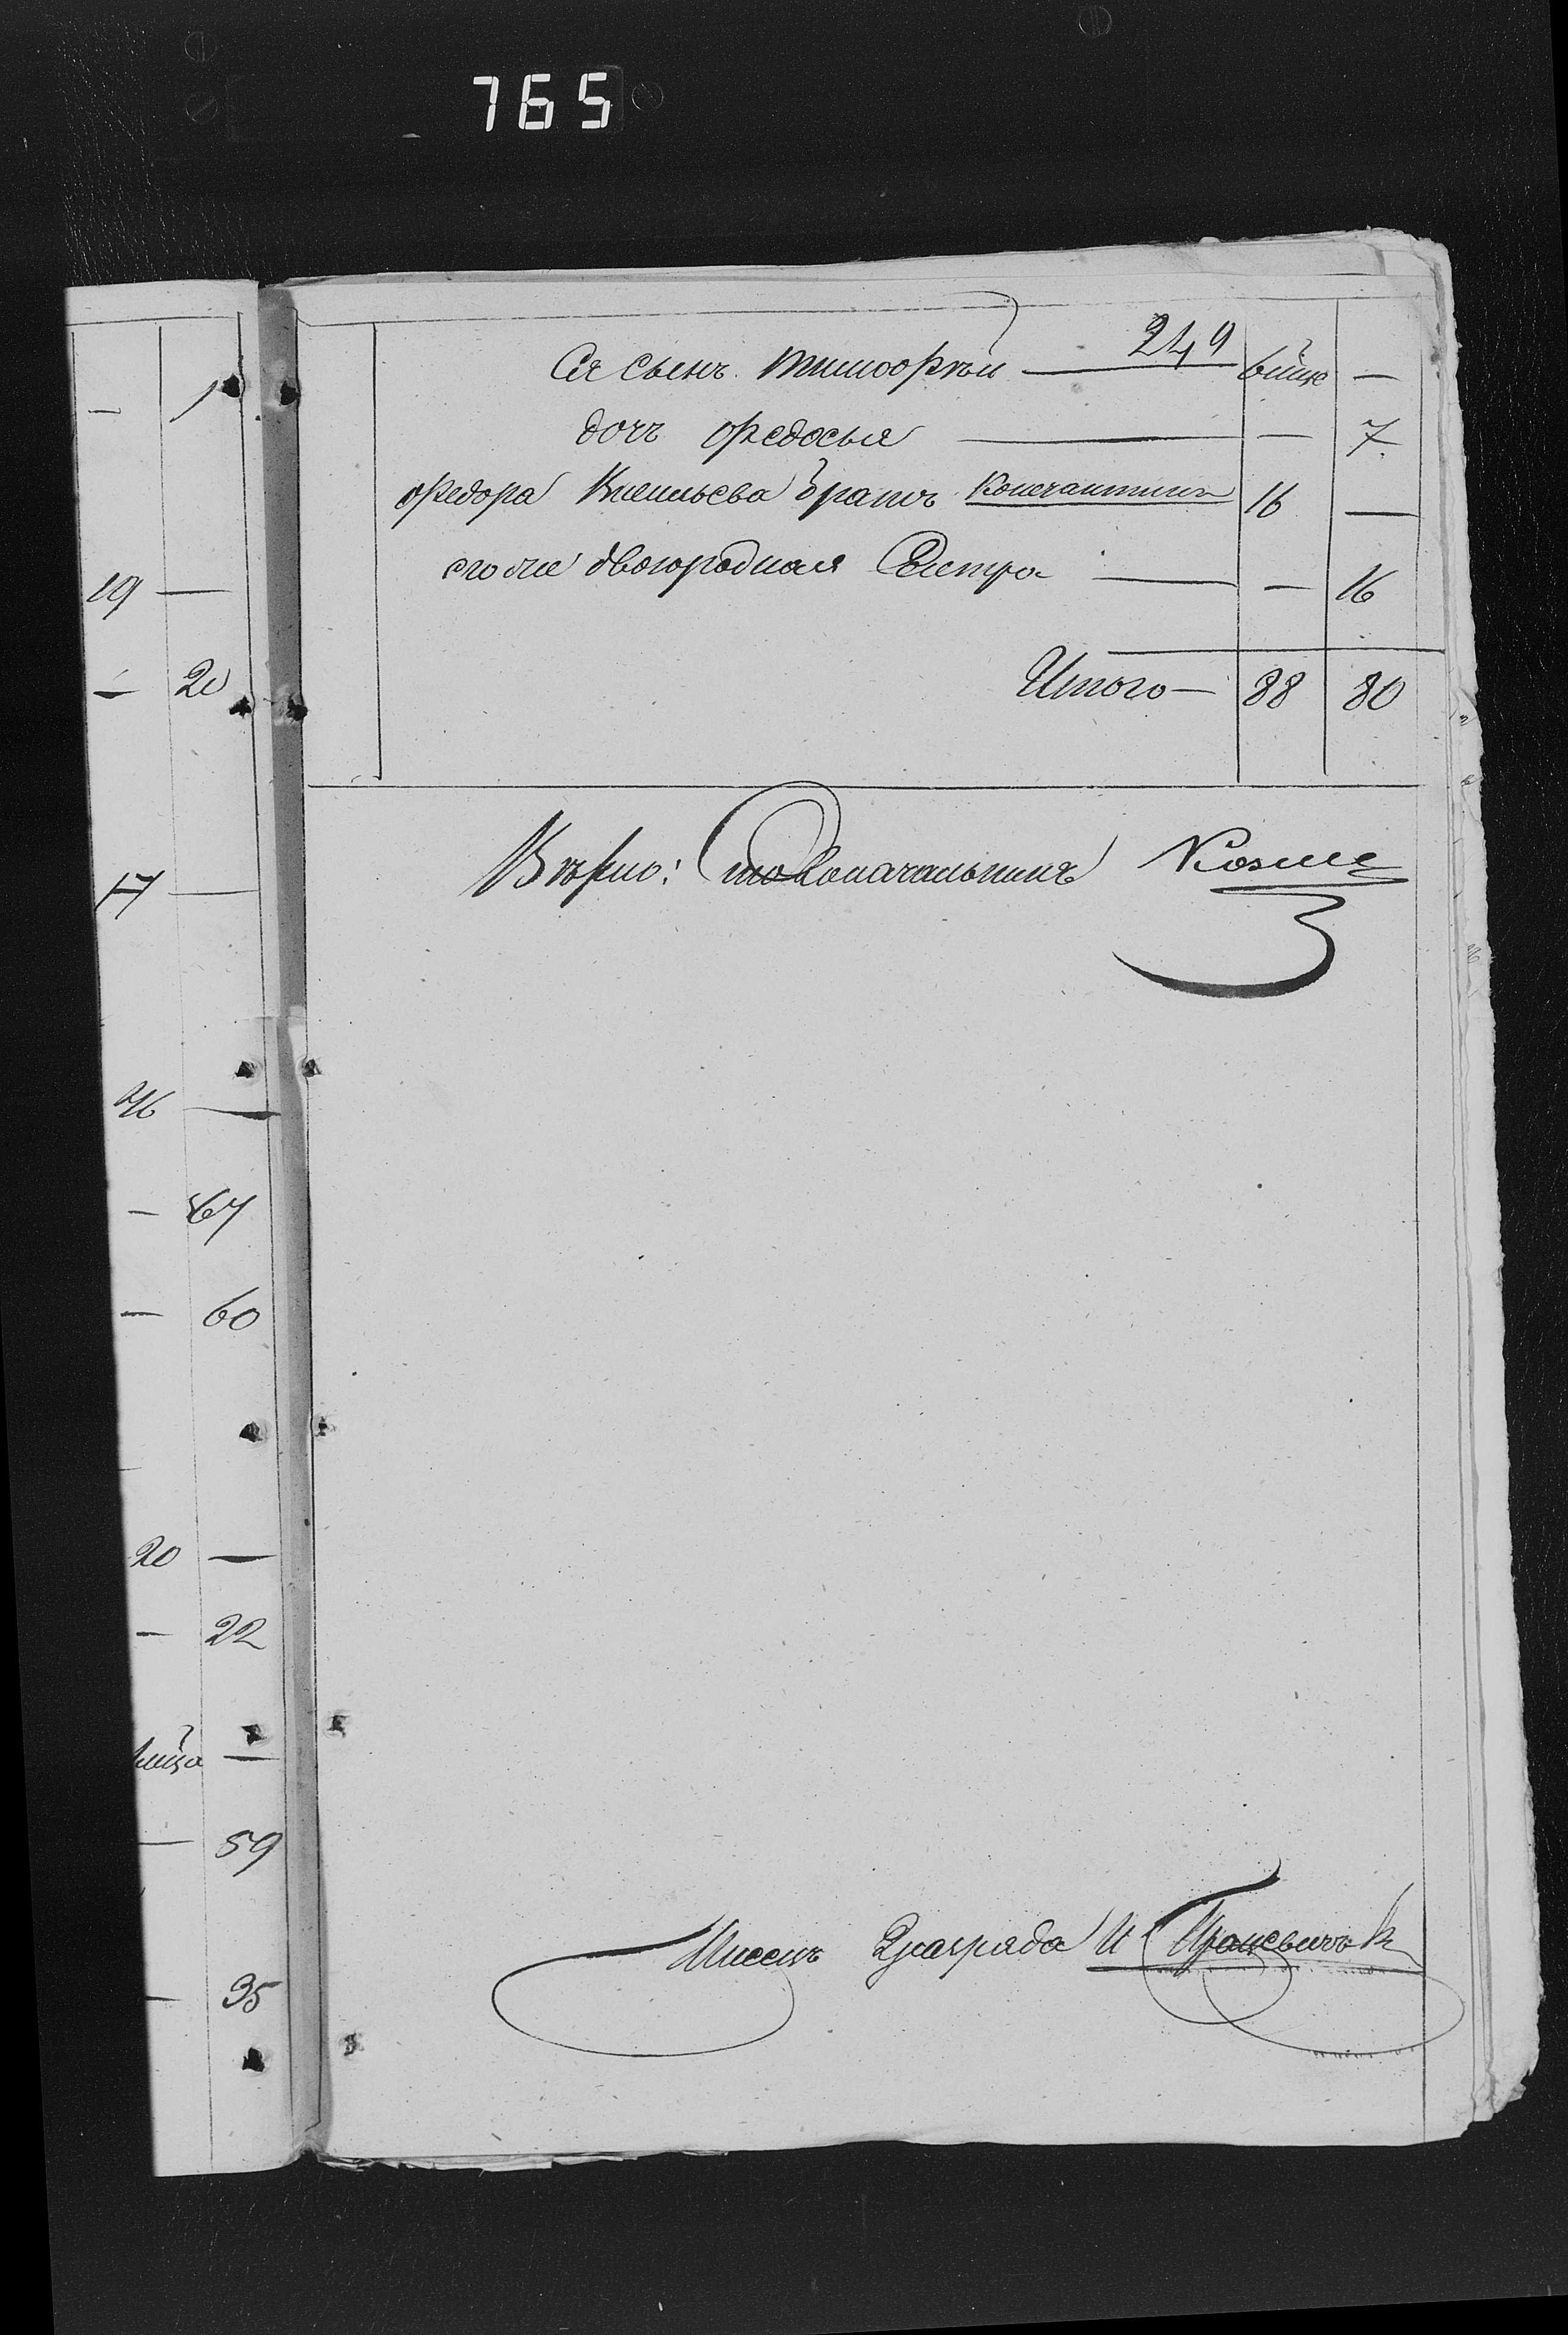 765
1
19 —
— 20
17 —
46 —
— 67
— 60
20 —
— 22
—
— 59
— 35
249
Ея сынъ тимофѣй — —
дочь федосья — — 7
федора Васильева братъ Константинъ 16 —
его же двоюродная Сестра — — 16
Итого — 88 80
Вѣрно: Столоначальникъ
Писецъ 2 разряда И